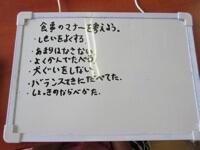 食事のマナーを考えよう。
・しせいをよくする
・あまりはなさない
・よくかんでたべる
・犬ぐいをしない
・バランスてきにたべてた。
・しょっきのならべかた。